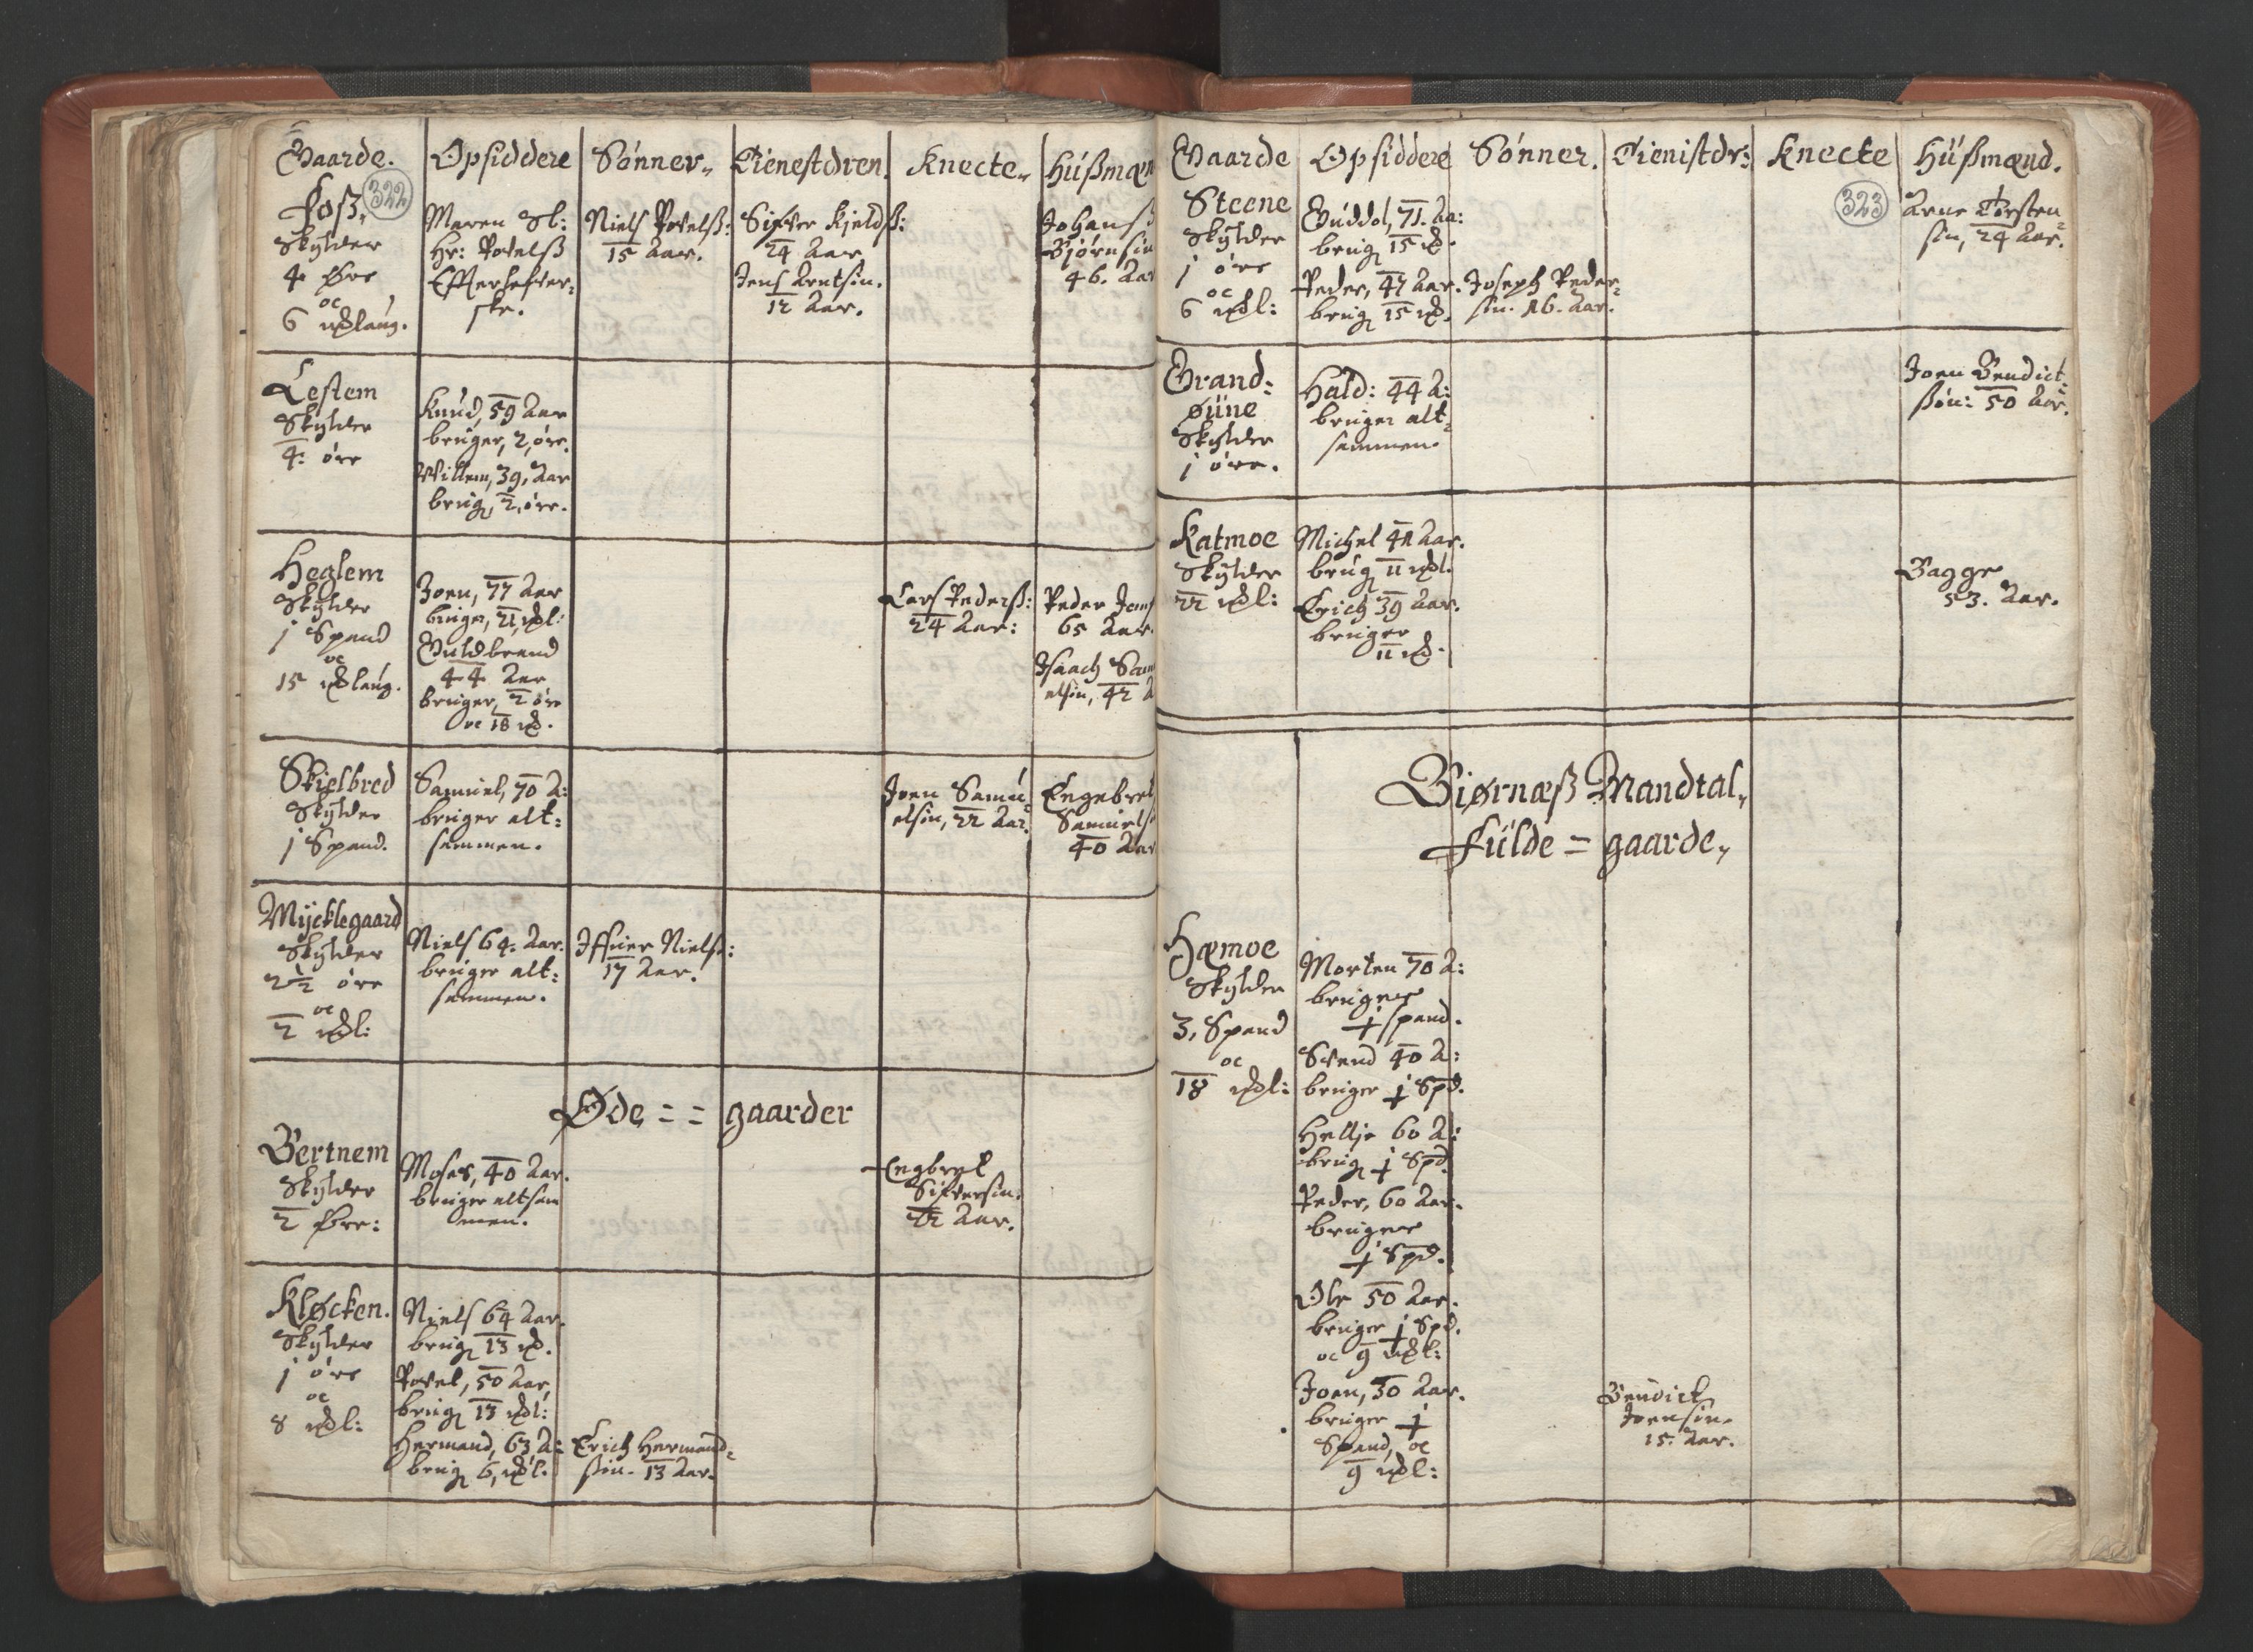 Gaarde. Opsiddere Sønner Tienestdren. Knecte Húßmæn
322
Foss
Skylder
4 Øre
oc
6 mklaug.
Maren Sl:
Hr: Povelß
Effterlefver
ske.
Niels Povelß:
15 Aar.
Sifver Kjeldß:
24 Aar
Jens Arntsøn.
12 Aar.
Johanß
Bjørnsøn
46. Aar
Lestem
Skylder
4: øre
Knud, 59 Aar
bruger, 2, øre.
Willem, 39, Aar
brug, 2, øre.
Heglem
Skylder
j Spand
oc
15 mklaug.
Joen, 77 Aar
bruger, 21 mkl:
Guldbrand
44 Aar
bruger, 2 øre
oc 18 mk.
Lars Pederß:
24 Aar:
Peder Jons
65 Aar
Isaach Sam
elsøn, 42 A
Skielbred
Skylder
j Spand.
Samuel, 70 A:
bruger alt:
sammen.
Joen Samu
elsøn, 22 Aar.
Engebret
Samuels
40 Aar
Mycklegaard
Skylder
2½ øre
oc
2 mkl:
Niels 64. Aar.
bruger alt:
sammen.
Iffuer Nielß:
17 Aar.
Øde = = gaarder
Bertnem
Skylder
2 Øre:
Moses, 40 Aar.
bruger altsam
men.
Engbret
Sifversøn.
22 Aar.
Kløcken.
Skylder
j øre
oc
8 mkl:
Niels 64 Aar.
brug 13 mk.
Povel, 50 Aar,
brug 13 mkl:
Hermand, 63 A:
brug 6, mkl.
Erich Hermand=
søn. 13 Aar.
Gaarde Opsiddere Sønner. Tienistdr: Knecte Húßmænd.
323
Steene
Skylder
j øre
oc
6 mkl:
Guddol, 71. Aa:
brug 15 mk.
Peder, 47 Aar.
brug 15 mk.
Joseph Peder=
søn. 16. Aar.
Arne Torsten
søn, 24 Aar.
Grand:
øiine
Skylder
j øre.
Hald: 44 A:
bruger alt=
sammen.
Joen Bendict
ßøn: 50 Aar.
Katmoe
Skylder
22 mkl:
Michel 41 Aar.
brug 11 mkl.
Erich 39 Aar.
bruger
11 mk.
Bagge
53. Aar.
Biørnæß Mandtal,
Fulde = gaarde,
Hæmoe
Skylder
3, Spand
oc
18 mkl:
Morten 70 A:
bruger
j spand.
Svend 40 A:
bruger j Spd.
Hellje 60 A:
brug j Spd.
Peder, 60 Aar.
bruger
j Spd.
Ole 50 Aar.
bruger j Spd.
oc 9 mkl:
Joen, 50 Aar.
bruger j
Spand, oc
9 mkl:
Bendick
Joensøn.
15. Aar.